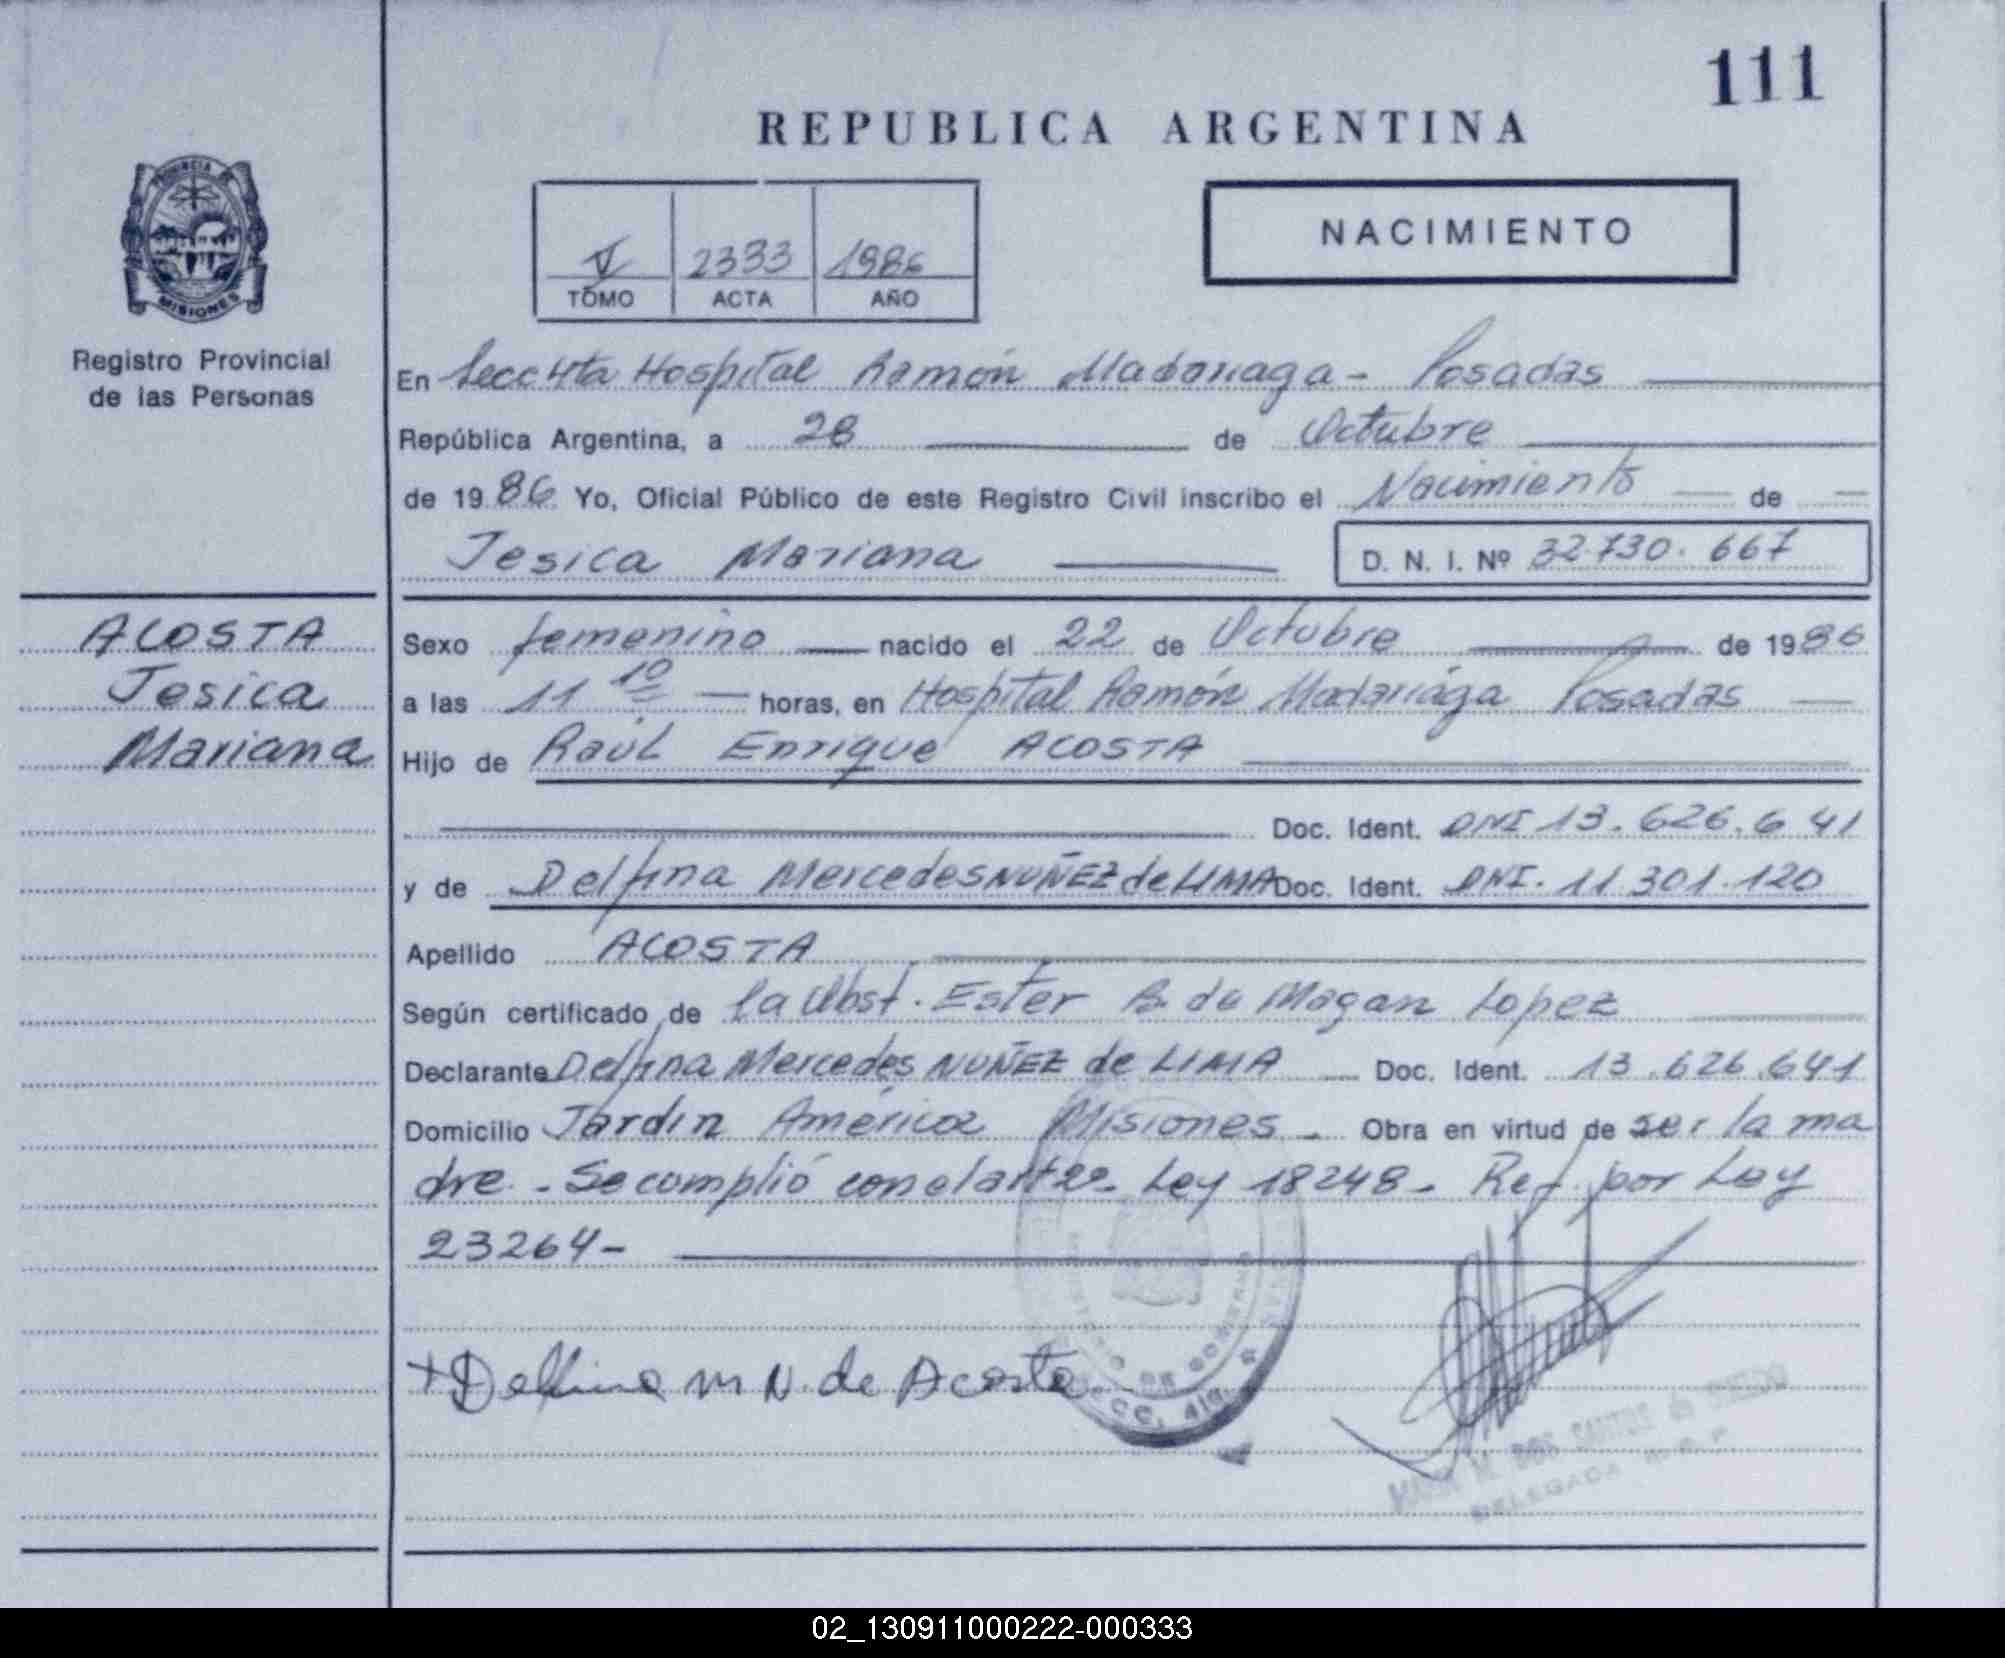 111
REPUBLICA ARGENTINA
PROVINCIA DE
MISIONES
Registro Provincial
de las Personas
V 2333 1986
TOMO ACTA AÑO
NACIMIENTO
En Secc 4ta Hospital Ramón Madariaga - Posadas
República Argentina, a 28 de Octubre
de 1986 Yo, Oficial Público de este Registro Civil inscribo el Nacimiento de
Jesica Mariana D. N. I. Nº 32.730.667
ACOSTA
Jesica
Mariana
Sexo femenino nacido el 22 de Octubre de 1986
a las 11 10 horas, en Hospital Ramón Madariága Posadas
Hijo de Raúl Enrique ACOSTA
Doc. Ident. DNI 13.626.641
y de Delfina Mercedes NUÑEZ de LIMA Doc. Ident. DNI. 11 301.120
Apellido ACOSTA
Según certificado de la Obst. Ester B. de Magan Lopez
Declarante Delfina Mercedes NUÑEZ de LIMA Doc. Ident. 13.626.641
Domicilio Jardin América Misiones - Obra en virtud de ser la ma
dre - Se cumplió con el art 22 - Ley 18248 - Ref. por Ley
23264 -
+ Delfina M N. de Acosta
MINISTERIO DE GOBIERNO
SECC. 4ta.
DOS SANTOS de
DELEGADA R. P. P.
02_130911000222-000333